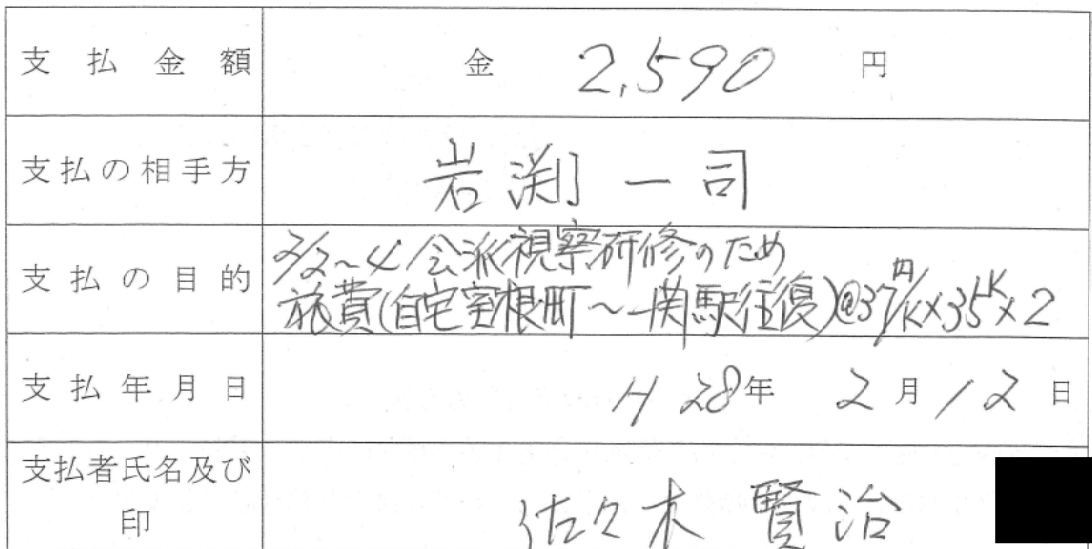 支払金額 金 2,590 円
支払の相手方 岩渕一司
支払の目的 2/2~4 会派視察研修のため
旅費(自宅室根町~一関駅往復)@37円/K×35K×2
支払年月日 H28年 2月12日
支払者氏名及び
印 佐々木 賢治